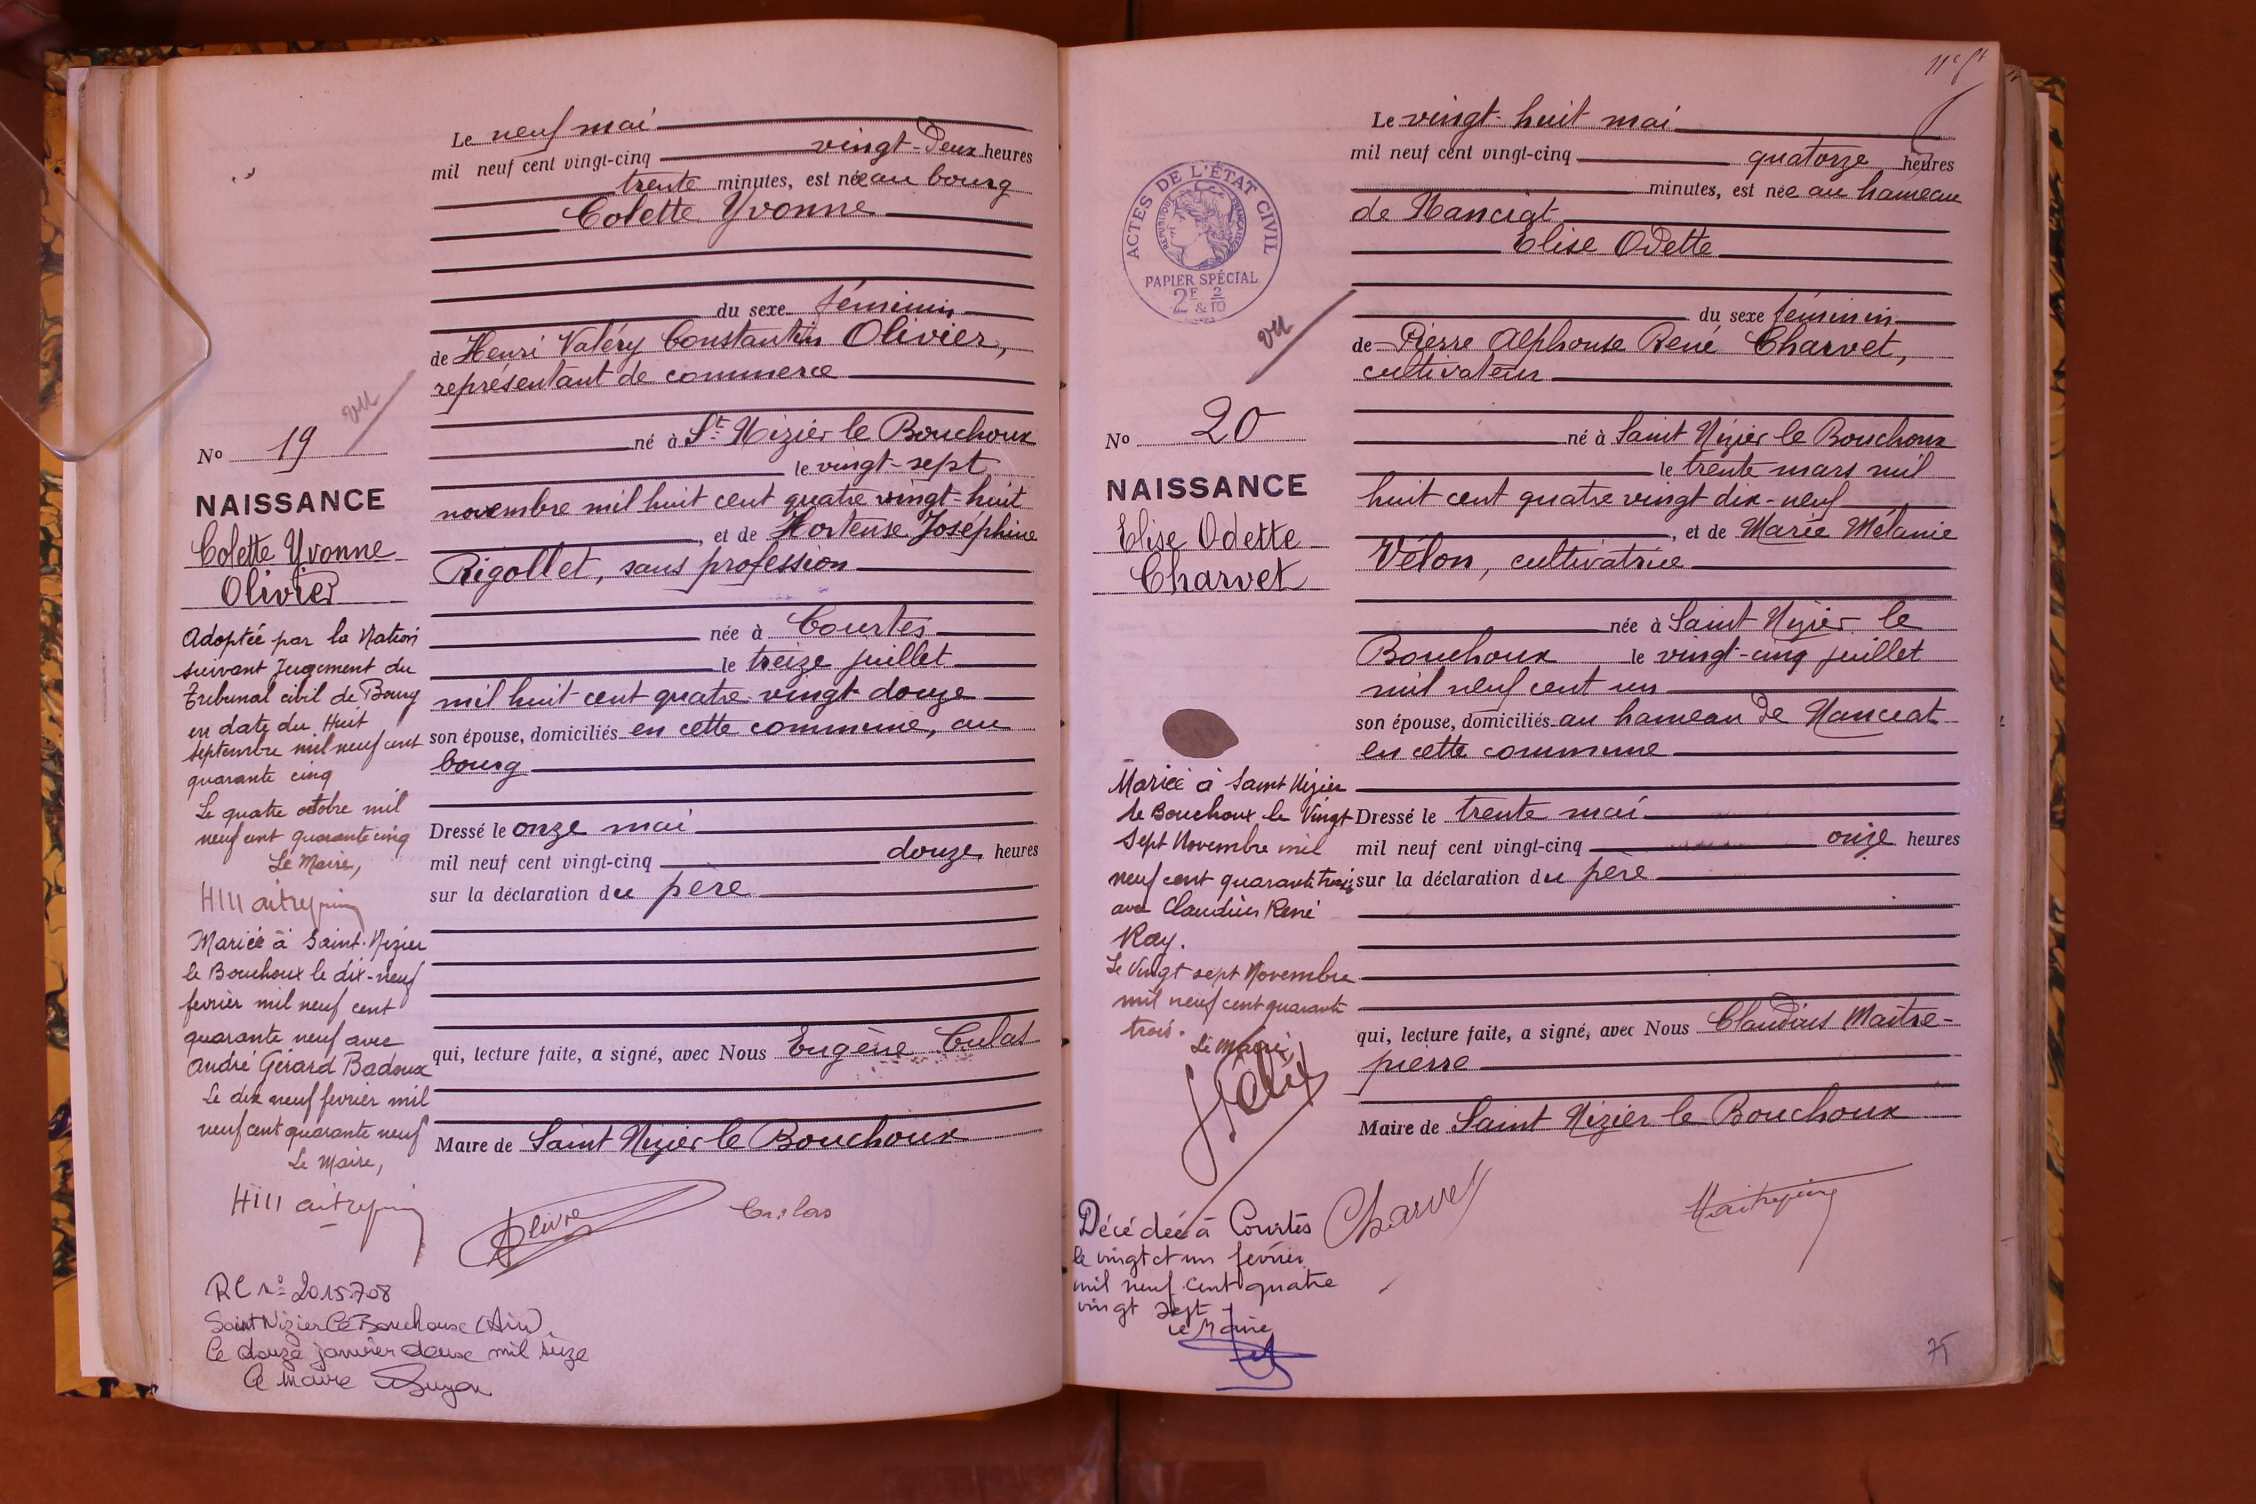 Le neuf mai
mil neuf cent vingt-cinq vingt-deux heures
trente minutes, est née au bourg
Colette Yvonne
du sexe féminin
de Henri Valéry Constantin Olivier,
représentant de commerce
né à St Nizier le Bouchoux
le vingt-sept
novembre mil huit cent quatre vingt-huit
, et de Hortense Joséphine
Rigollet, sans profession
née à Courtes
le treize juillet
mil huit cent quatre-vingt-douze
son épouse, domiciliés en cette commune, au
bourg
Dressé le onze mai
mil neuf cent vingt-cinq douze heures
sur la déclaration du père
qui, lecture faite, a signé, avec Nous Eugène Culas
Maire de Saint Nizier le Bouchoux
Olivier
Culas
vu
No 19
NAISSANCE
Colette Yvonne
Olivier
Adoptée par la Nation
suivant Jugement du
Tribunal civil de Bourg
en date du Huit
septembre mil neuf cent
quarante cinq
Le quatre octobre mil
neuf cent quarante cinq
Le Maire,
Mariée à Saint-Nizier
le Bouchoux le dix-neuf
fevrier mil neuf cent
quarante neuf avec
André Gérard Badoux
Le dix neuf fevrier mil
neuf cent quarante neuf
Le Maire,
RC No 2015.708
Saint Nizier Le Bouchoux (Ain)
Le douze janvier deux mil seize
Le Maire
Le vingt-huit mai
mil neuf cent vingt-cinq quatorze heures
minutes, est née au hameau
de Nanciat
Elise Odette
du sexe féminin
de Pierre Alphonse René Charvet,
cultivateur
né à Saint Nizier le Bouchoux
le trente mars mil
huit cent quatre vingt dix-neuf
, et de Marie Mélanie
Vélon, cultivatrice
née à Saint Nizier le
Bouchoux le vingt-cinq juillet
mil neuf cent un
son épouse, domiciliés au hameau de Nanciat
en cette commune
Dressé le trente mai
mil neuf cent vingt-cinq onze heures
sur la déclaration du père
qui, lecture faite, a signé, avec Nous Claudius Maitre-
pierre
Maire de Saint Nizier le Bouchoux
Charvet
Maitrepierre
ACTES DE L'ÉTAT CIVIL
RÉPUBLIQUE FRANÇAISE
PAPIER SPÉCIAL
2F & 2/10
vu
No 20
NAISSANCE
Elise Odette
Charvet
Mariée à Saint Nizier
le Bouchoux le Vingt
Sept Novembre mil
neuf cent quarante trois
avec Claudius René
Ray.
Le Vingt sept Novembre
mil neuf cent quarante
trois.
Le Maire,
Décédée à Courtes
le vingt et un fevrier
mil neuf cent quatre
vingt sept
Le Maire
75